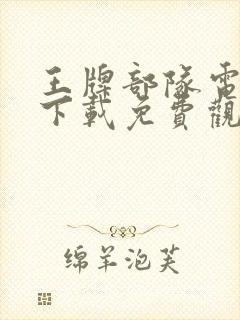 王牌部隊電
下載免費觀
绵羊泡芙